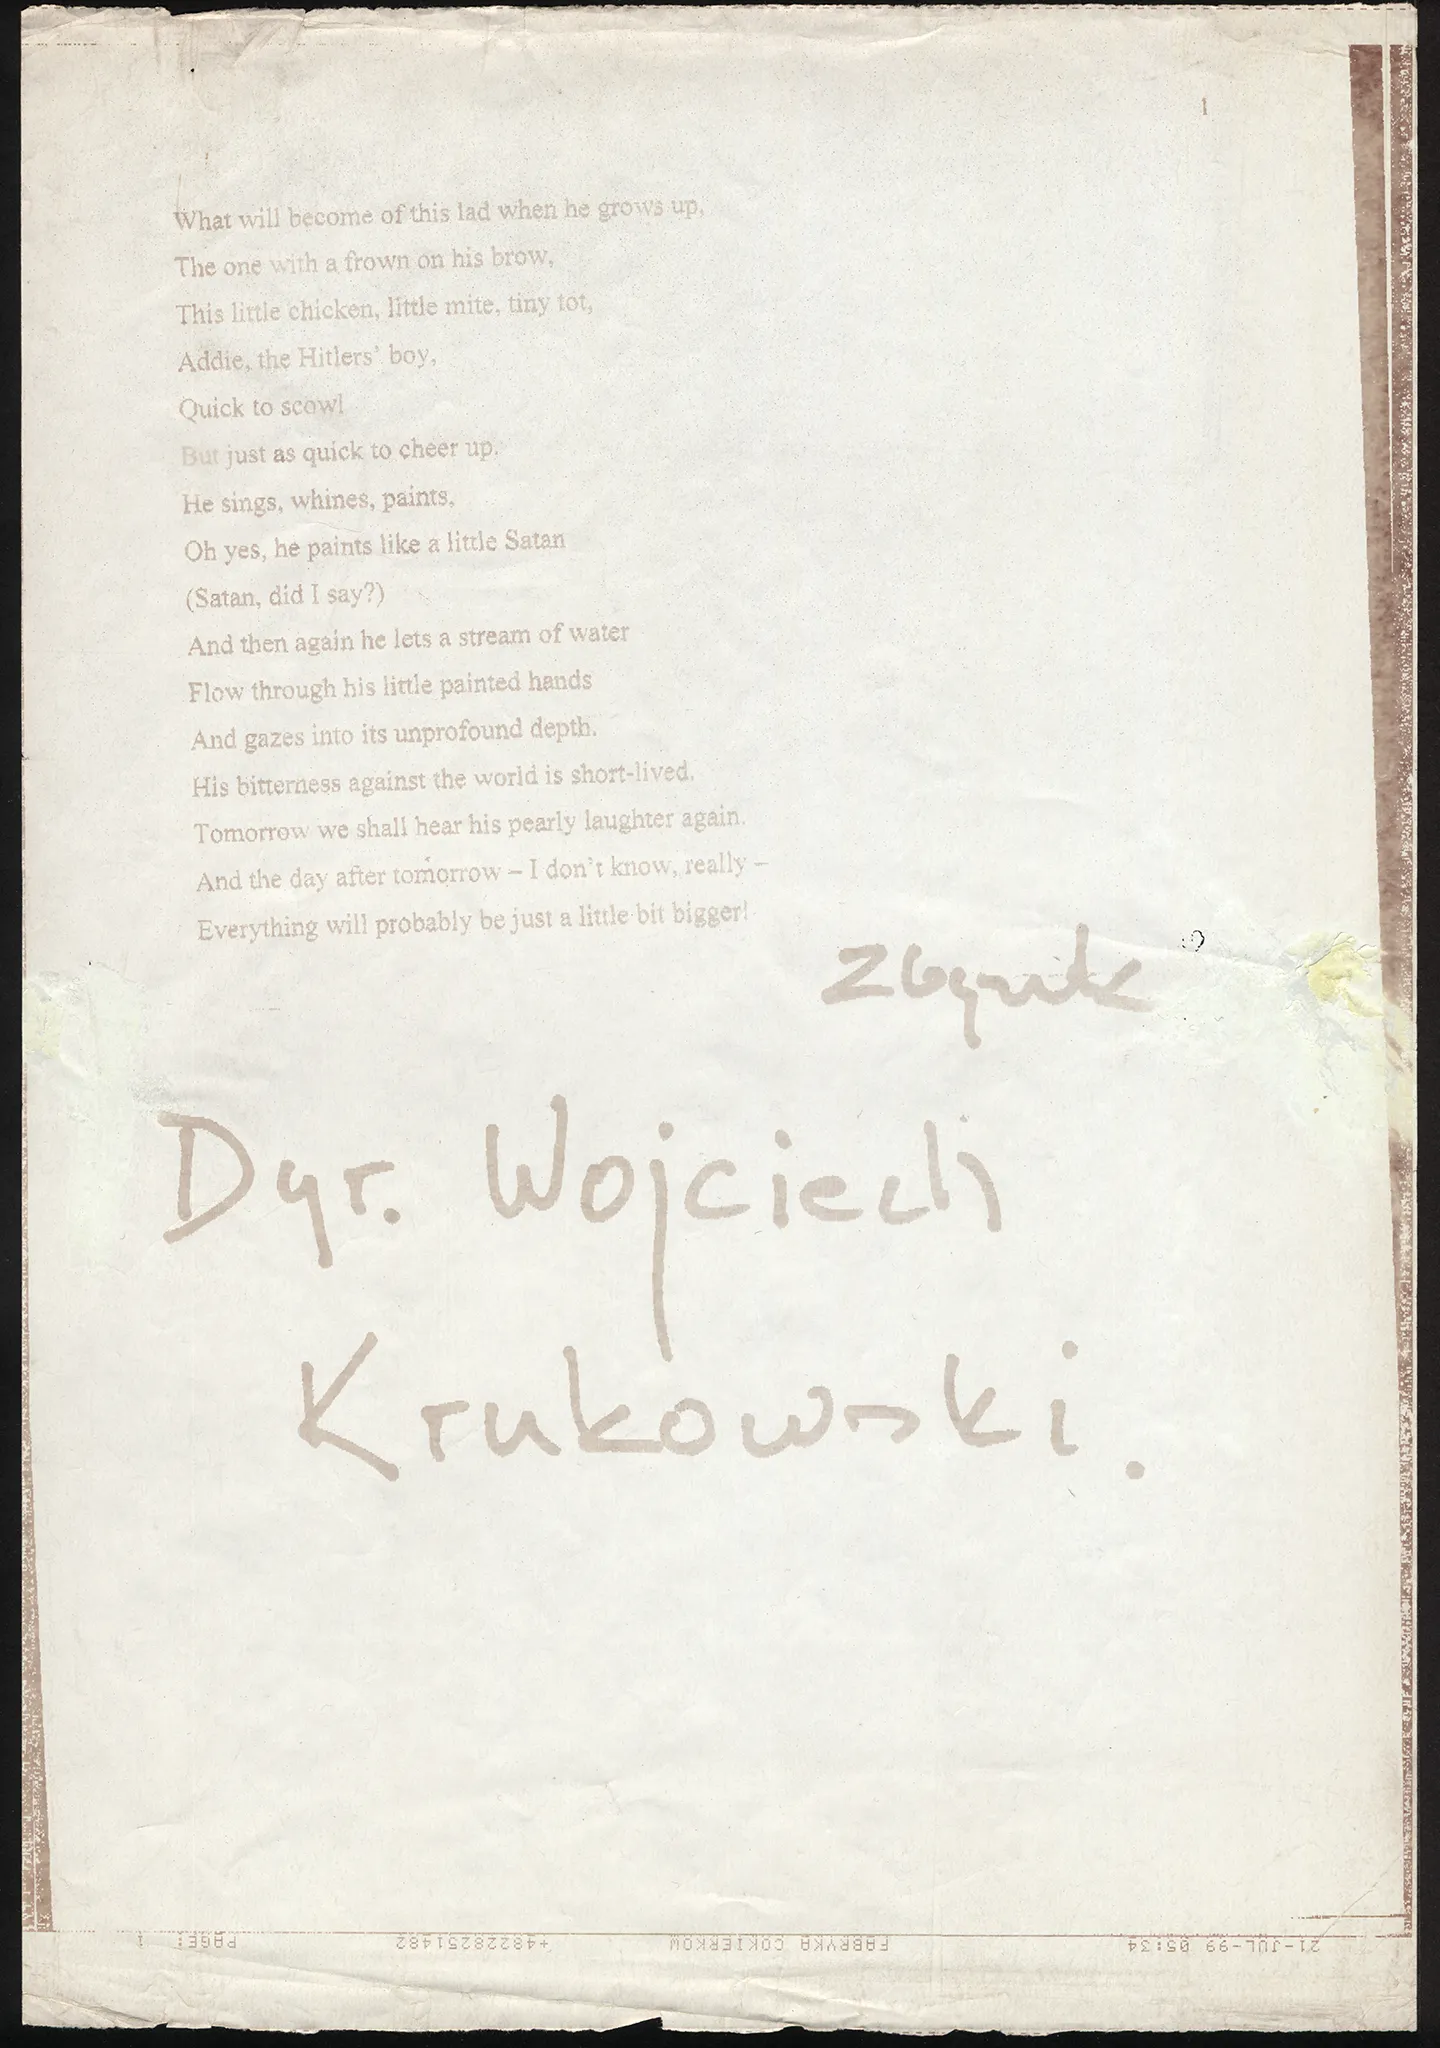 1
What will become of this lad when he grows up,
The one with a frown on his brow,
This little chicken, little mite, tiny tot,
Addie, the Hitlers' boy,
Quick to scowl
But just as quick to cheer up.
He sings, whines, paints,
Oh yes, he paints like a little Satan
(Satan, did I say?)
And then again he lets a stream of water
Flow through his little painted hands
And gazes into its unprofound depth.
His bitterness against the world is short-lived.
Tomorrow we shall hear his pearly laughter again.
And the day after tomorrow – I don't know, really –
Everything will probably be just a little bit bigger!
Dyr. Wojciech
Krukowski.
21-JUL-99 05:34 FABRYKA COKIERKOW +48228251482 PAGE: 1